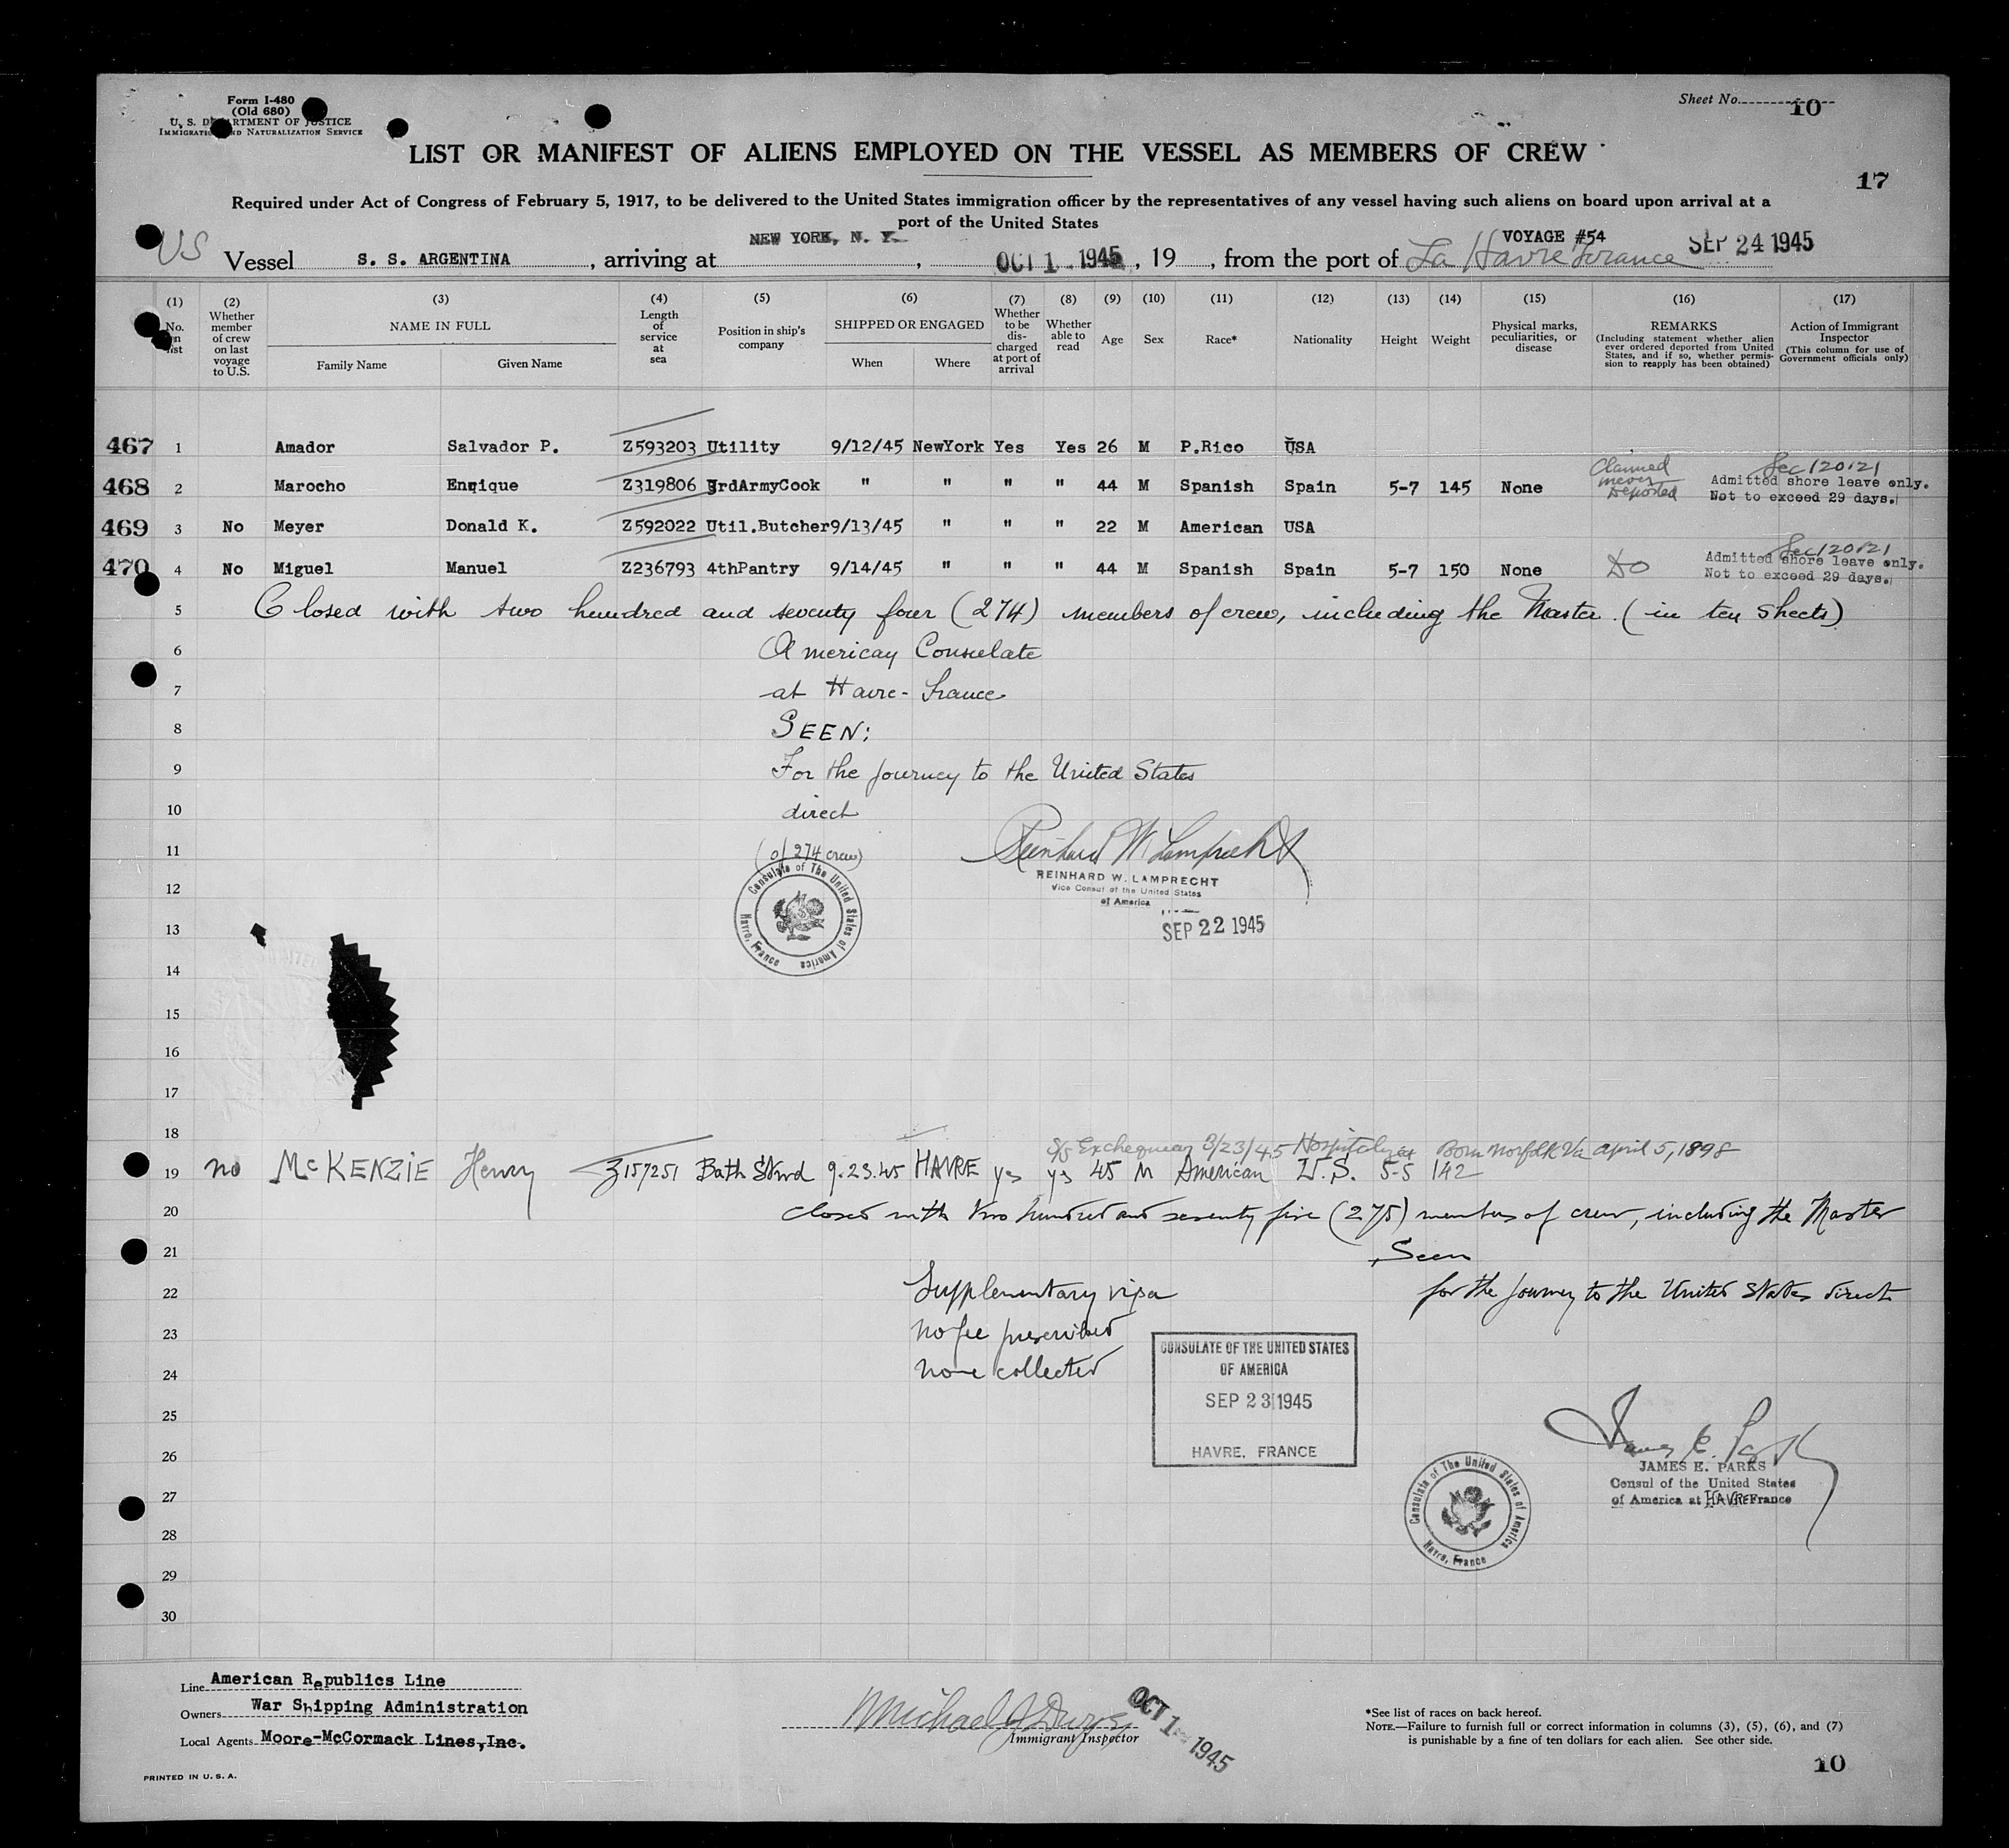 Form I-480
(Old 680)
U. S. DEPARTMENT OF JUSTICE
IMMIGRATION AND NATURALIZATION SERVICE
Sheet No. 10
LIST OR MANIFEST OF ALIENS EMPLOYED ON THE VESSEL AS MEMBERS OF CREW
17
Required under Act of Congress of February 5, 1917, to be delivered to the United States immigration officer by the representatives of any vessel having such aliens on board upon arrival at a
port of the United States
US Vessel S. S. ARGENTINA, arriving at NEW YORK, N. Y., OCT 1 1945, 19 , from the port of La Havre France VOYAGE #54 SEP 24 1945
(1) (2) (3) (4) (5) (6) (7) (8) (9) (10) (11) (12) (13) (14) (15) (16) (17)
No. on list
Whether member of crew on last voyage to U.S.
NAME IN FULL
Family Name Given Name
Length of service at sea
Position in ship's company
SHIPPED OR ENGAGED
When Where
Whether to be discharged at port of arrival
Whether able to read
Age Sex Race* Nationality Height Weight
Physical marks, peculiarities, or disease
REMARKS
(Including statement whether alien ever ordered deported from United States, and if so, whether permission to reapply has been obtained)
Action of Immigrant Inspector
(This column for use of Government officials only)
467 1 Amador Salvador P. Z593203 Utility 9/12/45 NewYork Yes Yes 26 M P.Rico USA
468 2 Marocho Enrique Z319806 3rdArmyCook " " " " 44 M Spanish Spain 5-7 145 None Claimed never Deported Sec 120.21 Admitted shore leave only. Not to exceed 29 days.
469 3 No Meyer Donald K. Z592022 Util.Butcher 9/13/45 " " " 22 M American USA
470 4 No Miguel Manuel Z236793 4thPantry 9/14/45 " " " 44 M Spanish Spain 5-7 150 None Do Sec 120.21 Admitted shore leave only. Not to exceed 29 days.
5 Closed with two hundred and seventy four (274) members of crew, including the Master. (in ten sheets)
6 American Consulate
7 at Havre - France
8 SEEN:
9 For the journey to the United States
10 direct
11 (of 274 crew)
Reinhard W. Lamprecht
REINHARD W. LAMPRECHT
12 Vice Consul of the United States
of America
Consulate of The United States of America Havre, France
13 SEP 22 1945
14
15
16
17
18 S/S Exchequer 3/23/45 Hospitalized Born Norfolk Va April 5, 1898
19 no McKENZIE Henry Z157251 Bath Stwd 9.23.45 HAVRE yes yes 45 M American U.S. 5-5 142
20 Closed with two hundred and seventy five (275) members of crew, including the Master
21 Seen
22 Supplementary visa for the journey to the United States direct
23 no fee prescribed
24 none collected
CONSULATE OF THE UNITED STATES
OF AMERICA
SEP 23 1945
HAVRE, FRANCE
25
26
James E. Parks
JAMES E. PARKS
Consul of the United States
of America at HAVRE France
Consulate of The United States of America Havre, France
27
28
29
30
Line American Republics Line
Owners War Shipping Administration
Local Agents Moore-McCormack Lines, Inc.
Immigrant Inspector
OCT 1 1945
*See list of races on back hereof.
NOTE.—Failure to furnish full or correct information in columns (3), (5), (6), and (7)
is punishable by a fine of ten dollars for each alien. See other side.
10
PRINTED IN U. S. A.